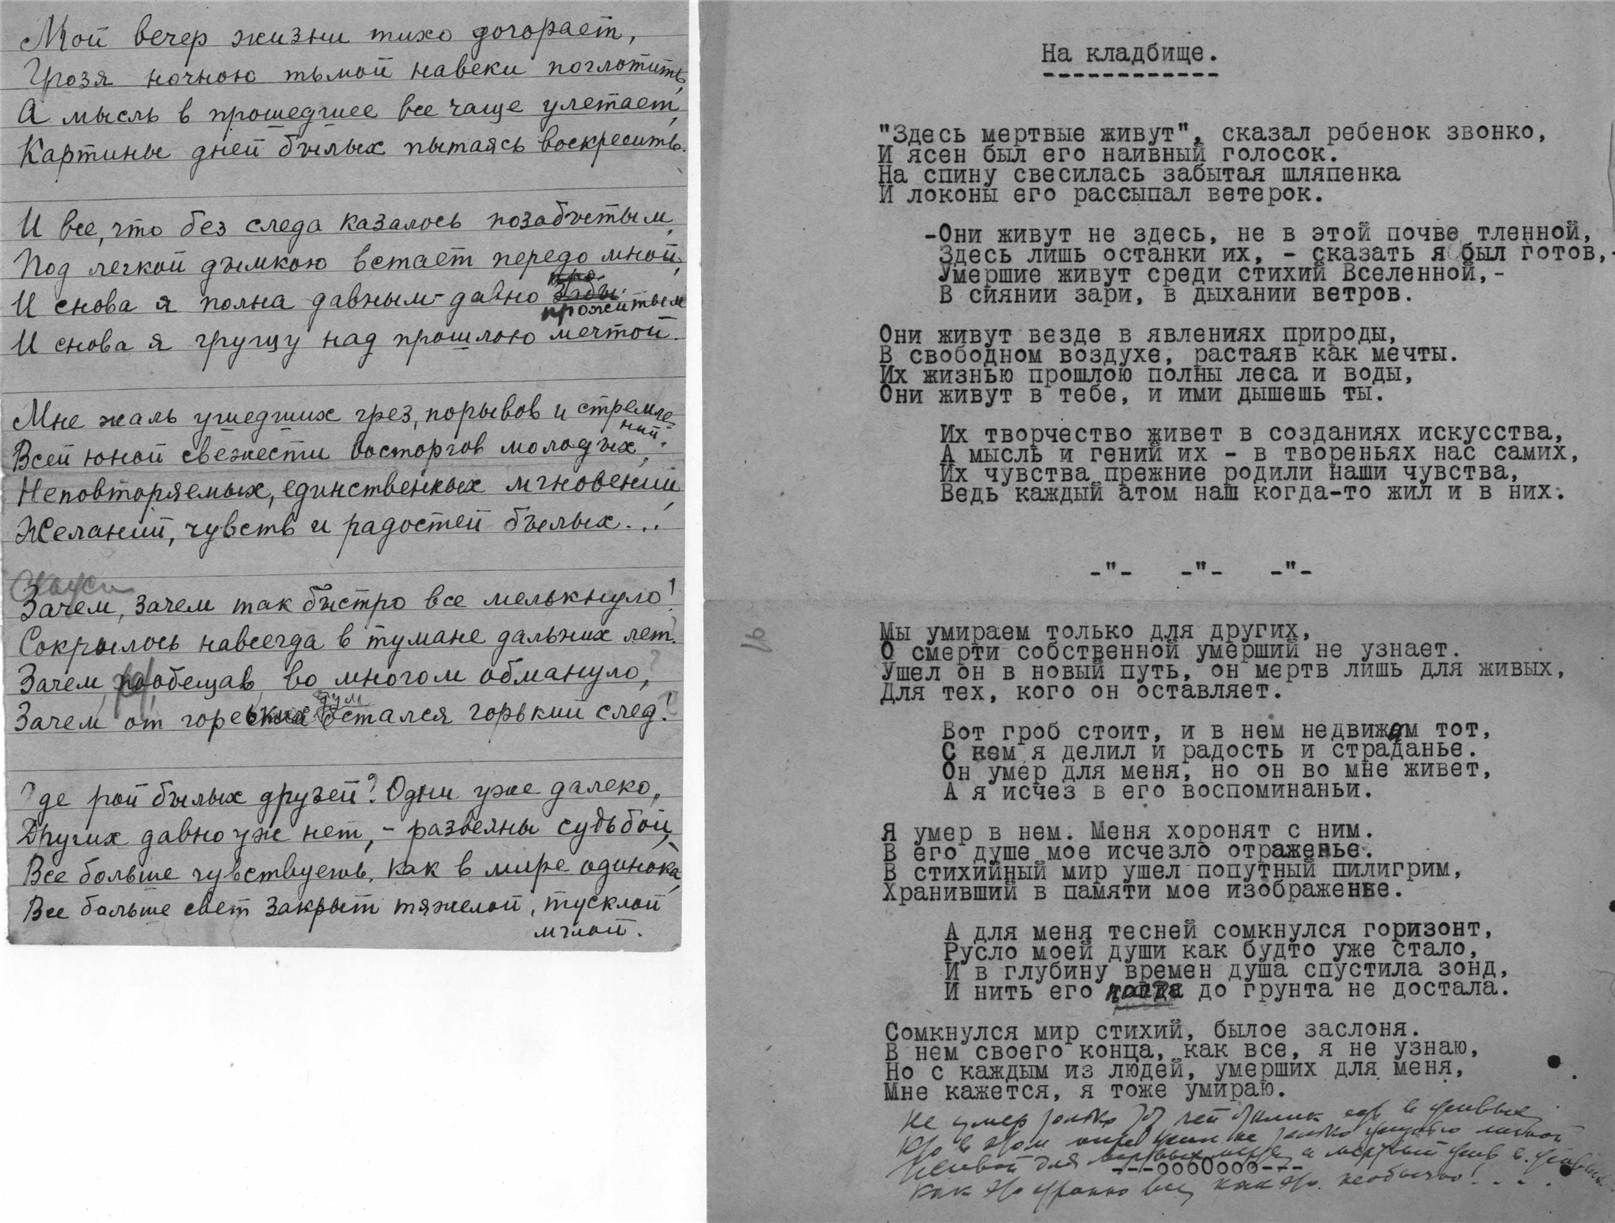 Мой вечер жизни тихо догорает,
Грозя ночною тьмой навеки поглотить,
А мысль в прошедшее все чаще улетает,
Картины дней былых пытаясь воскресить.
И все, что без следа казалось позабытым,
Под легкой дымкою встает передо мной,
И снова я полна давным-давно
прожитым
И снова я грущу над прошлою мечтой.
Мне жаль ушедших грез, порывов и стремле-
ний,
Всей юной свежести восторгов молодых,
Неповторяемых, единственных мгновений
Желаний, чувств и радостей былых...
Зачем, зачем так быстро все мелькнуло!
Сокрылось навсегда в тумане дальних лет.
Зачем, пообещав, во многом обмануло,
Зачем от дум остался горький след!
Где рой былых друзей? Одни уже далеко,
Других давно уж нет, - развеяны судьбой,
Все больше чувствуешь, как в мире одинока,
Все больше свет закрыт тяжелой, тусклой
мглой.
На кладбище.
------------
"Здесь мертвые живут", сказал ребенок звонко,
И ясен был его наивный голосок.
На спину свесилась забытая шляпенка
И локоны его рассыпал ветерок.
-Они живут не здесь, не в этой почве тленной,
Здесь лишь останки их, - сказать я был готов,-
Умершие живут среди стихий Вселенной,-
В сиянии зари, в дыхании ветров.
Они живут везде в явлениях природы,
В свободном воздухе, растаяв как мечты.
Их жизнью прошлою полны леса и воды,
Они живут в тебе, и ими дышешь ты.
Их творчество живет в созданиях искусства,
А мысль и гений их - в твореньях нас самих,
Их чувства прежние родили наши чувства,
Ведь каждый атом наш когда-то жил и в них.
-"- -"- -"-
Мы умираем только для других,
О смерти собственной умерший не узнает.
Ушел он в новый путь, он мертв лишь для живых,
Для тех, кого он оставляет.
Вот гроб стоит, и в нем недвижим тот,
С кем я делил и радость и страданье.
Он умер для меня, но он во мне живет,
А я исчез в его воспоминаньи.
Я умер в нем. Меня хоронят с ним.
В его душе мое исчезло отраженье.
В стихийный мир ушел попутный пилигрим,
Хранивший в памяти мое изображенье.
А для меня тесней сомкнулся горизонт,
Русло моей души как будто уже стало,
И в глубину времен душа спустила зонд,
И нить его до грунта не достала.
Сомкнулся мир стихий, былое заслоня.
В нем своего конца, как все, я не узнаю,
Но с каждым из людей, умерших для меня,
Мне кажется, я тоже умираю.
Не умер только
---ооо0ооо---